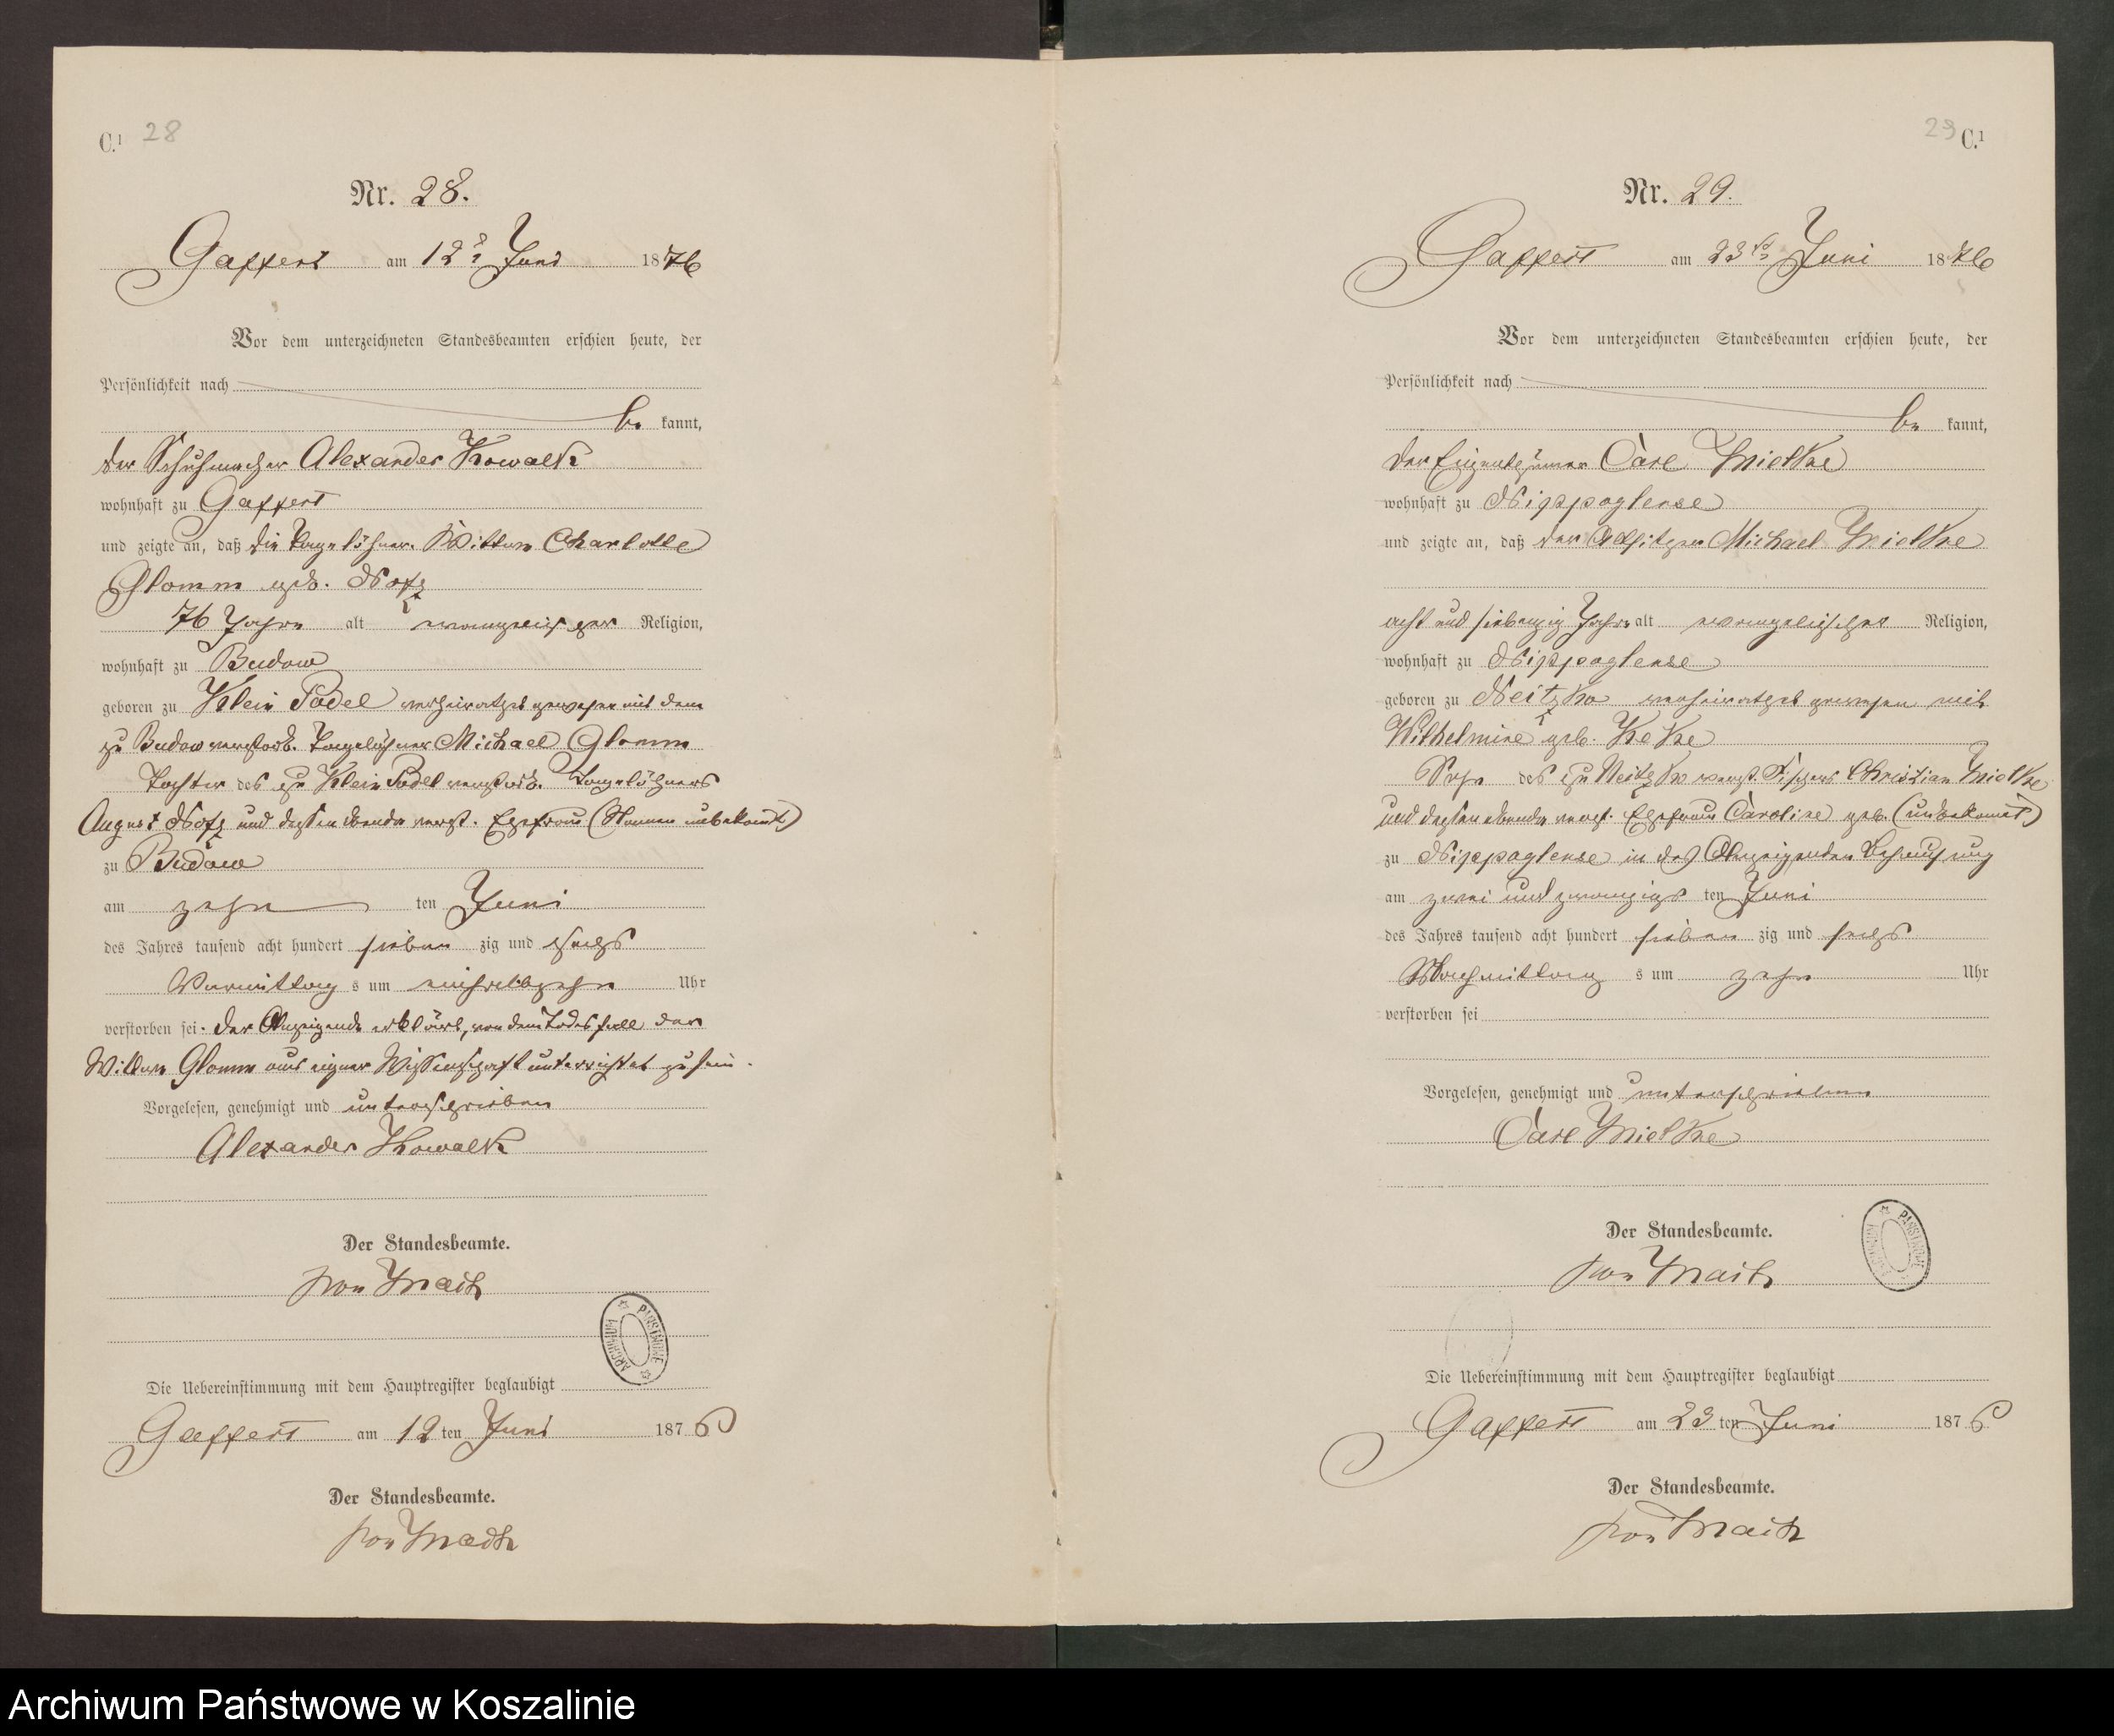 C.¹ 28
Nr. 28.
Gaffert am 12ᵗ Juni 1876
Vor dem unterzeichneten Standesbeamten erschien heute, der
Persönlichkeit nach
be kannt,
der Schuhmacher Alexander Kowalk
wohnhaft zu Gaffert
und zeigte an, daß die Tagelöhner Wittwe Charlotte
Glomm geb. Notz
76 Jahre alt evangelischer Religion,
wohnhaft zu Budow
geboren zu Klein Podel verheirathet gewesen mit dem
zu Budow verstorb. Tagelöhner Michael Glomm
Tochter des zu Klein Podel verstorb. Tagelöhners
August Notz und dessen ebenda verst. Ehefrau (Namen unbekannt)
zu Budow
am zehn ten Juni
des Jahres tausend acht hundert sieben zig und sechs
Vormittag s um einhalbzehn Uhr
verstorben sei. Der Anzeigende erklärt, von dem Todesfall der
Wittwe Glomm aus eigner Wissenschaft unterrichtet zu sein.
Vorgelesen, genehmigt und unterschrieben
Alexander Kowalk
Der Standesbeamte.
von
ARCHIWUM PAŃSTWOWE
Die Uebereinstimmung mit dem Hauptregister beglaubigt
Gaffert am 12 ten Juni 1876
Der Standesbeamte.
von
29 C.¹
Nr. 29.
Gaffert am 23ᵗᵉⁿ Juni 1876
Vor dem unterzeichneten Standesbeamten erschien heute, der
Persönlichkeit nach
be kannt,
der Eigenthümer Carl Mielke
wohnhaft zu Nippoglense
und zeigte an, daß der Altsitzer Michael Mielke
acht und siebenzig Jahre alt evangelischer Religion,
wohnhaft zu Nippoglense
geboren zu Neitzke verheirathet gewesen mit
Wilhelmine geb. Keke
Sohn des zu Neitzke verst. Fischers Christian Mielke
und dessen ebenda verst. Ehefrau Caroline geb. (unbekannt)
zu Nippoglense in des Anzeigenden Behausung
am zwei und zwanzigs ten Juni
des Jahres tausend acht hundert sieben zig und sechs
Nachmittag s um zehn Uhr
verstorben sei
Vorgelesen, genehmigt und unterschrieben
Carl Mielke
Der Standesbeamte.
von
ARCHIWUM PAŃSTWOWE
Die Uebereinstimmung mit dem Hauptregister beglaubigt
Gaffert am 23 ten Juni 1876
Der Standesbeamte.
von
Archiwum Państwowe w Koszalinie